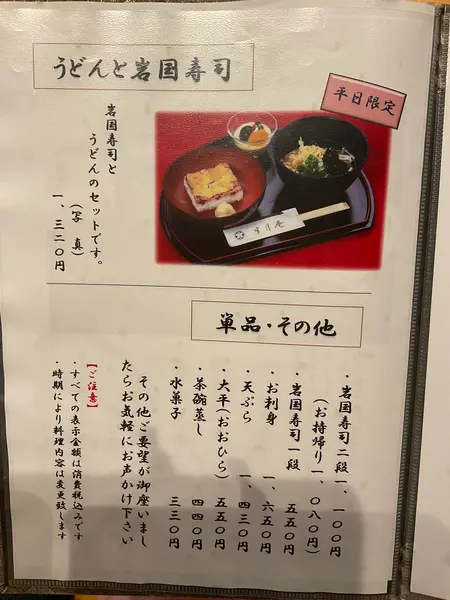 うどんと岩国寿司
平日限定
岩国寿司と
うどんのセットです。
(写真)
一、三二〇円
半月庵
単品・その他
・岩国寿司二段 一、一〇〇円
(お持帰り 一、〇八〇円)
・岩国寿司一段 五五〇円
・お刺身 一、六五〇円
・天ぷら 一、四三〇円
・大平(おおひら) 五五〇円
・茶碗蒸し 四四〇円
・水菓子 三三〇円
その他ご要望が御座いまし
たらお気軽にお声かけ下さい
【ご注意】
・すべての表示金額は消費税込みです
・時期により料理内容は変更致します